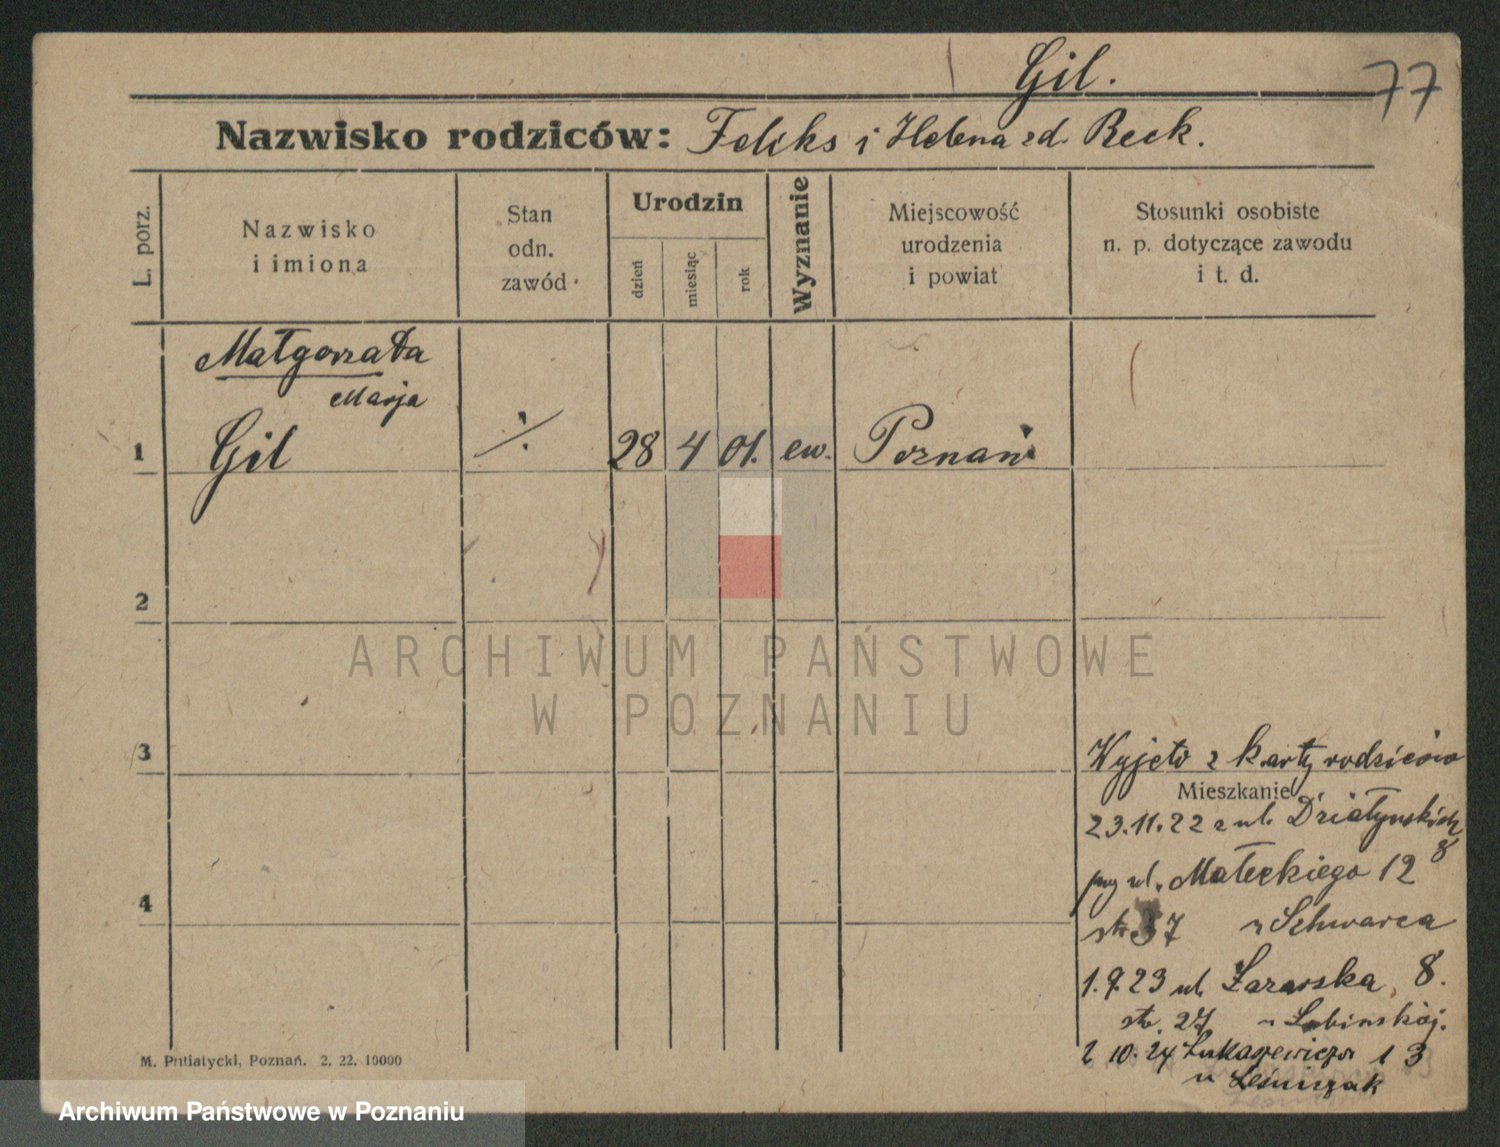 Gil.
77
Nazwisko rodziców: Feliks i Helena zd. Beck.
L. porz.
Nazwisko
i imiona
Stan
odn.
zawód
Urodzin
dzień
miesiąc
rok
Wyznanie
Miejscowość
urodzenia
i powiat
Stosunki osobiste
n. p. dotyczące zawodu
i t. d.
Małgorzata
Marja
1 Gil ./. 28 4 01. ew. Poznań
2
ARCHIWUM PAŃSTWOWE
W POZNANIU
3
Wyjęto z karty rodziców
Mieszkanie
23.11.22 z ul. Działyńskich 8
ul. Małeckiego 12
str. 37 u Schwarca
1.9.23 ul. 8.
str. 27 u Lubińskiej.
2 10.24 Łukaszewicza 13
u Leśniczak
4
M. Putiatycki, Poznań. 2. 22. 10000
Archiwum Państwowe w Poznaniu